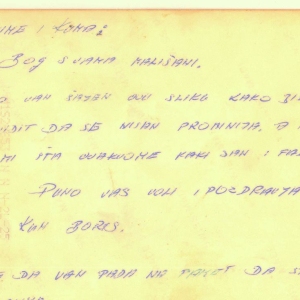 UME I KUMA:
BOG S VAMA MALIŠANI.
VAM ŠAJEN OVU SLIKU KAKO BI
DIT DA SE NISAN PROMINIJA. A
MI ŠTA OVAKVOME KAKI SAN I FA
PUNO VAS VOLI I POZDRAVJA
KUM BORIS.
DA VAN PADA NA PAMET DA S